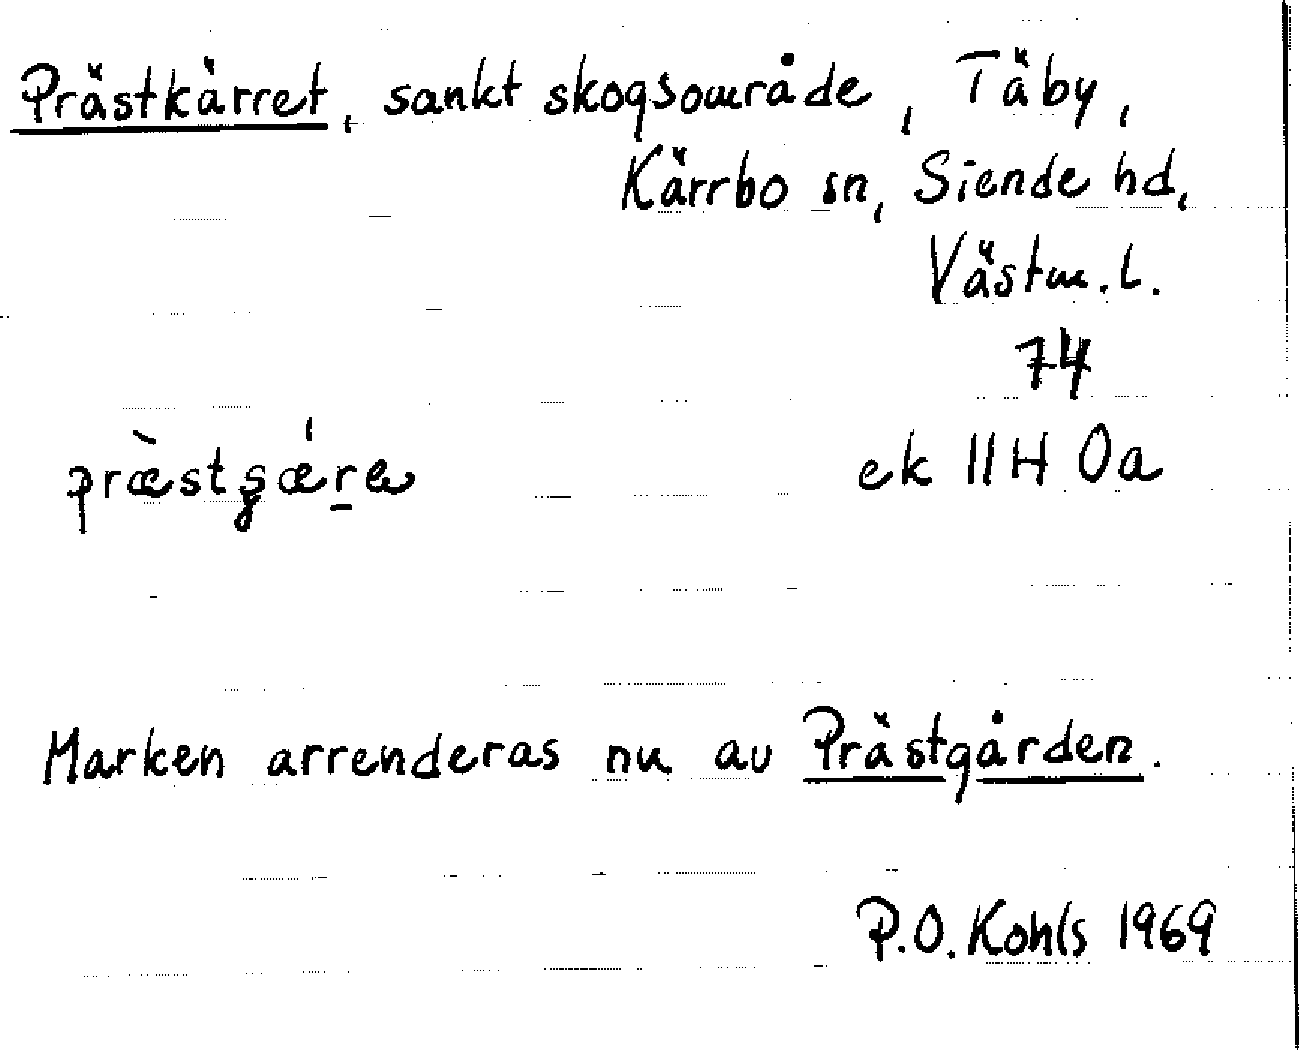 Prästkärret, sankt skogsområde, Täby,
Kärrbo sn, Siende hd,
Västm. l.
74
præ̀stʂǽrə ek 11H 0a
Marken arrenderas nu av Prästgården.
P.O. Kohls 1969